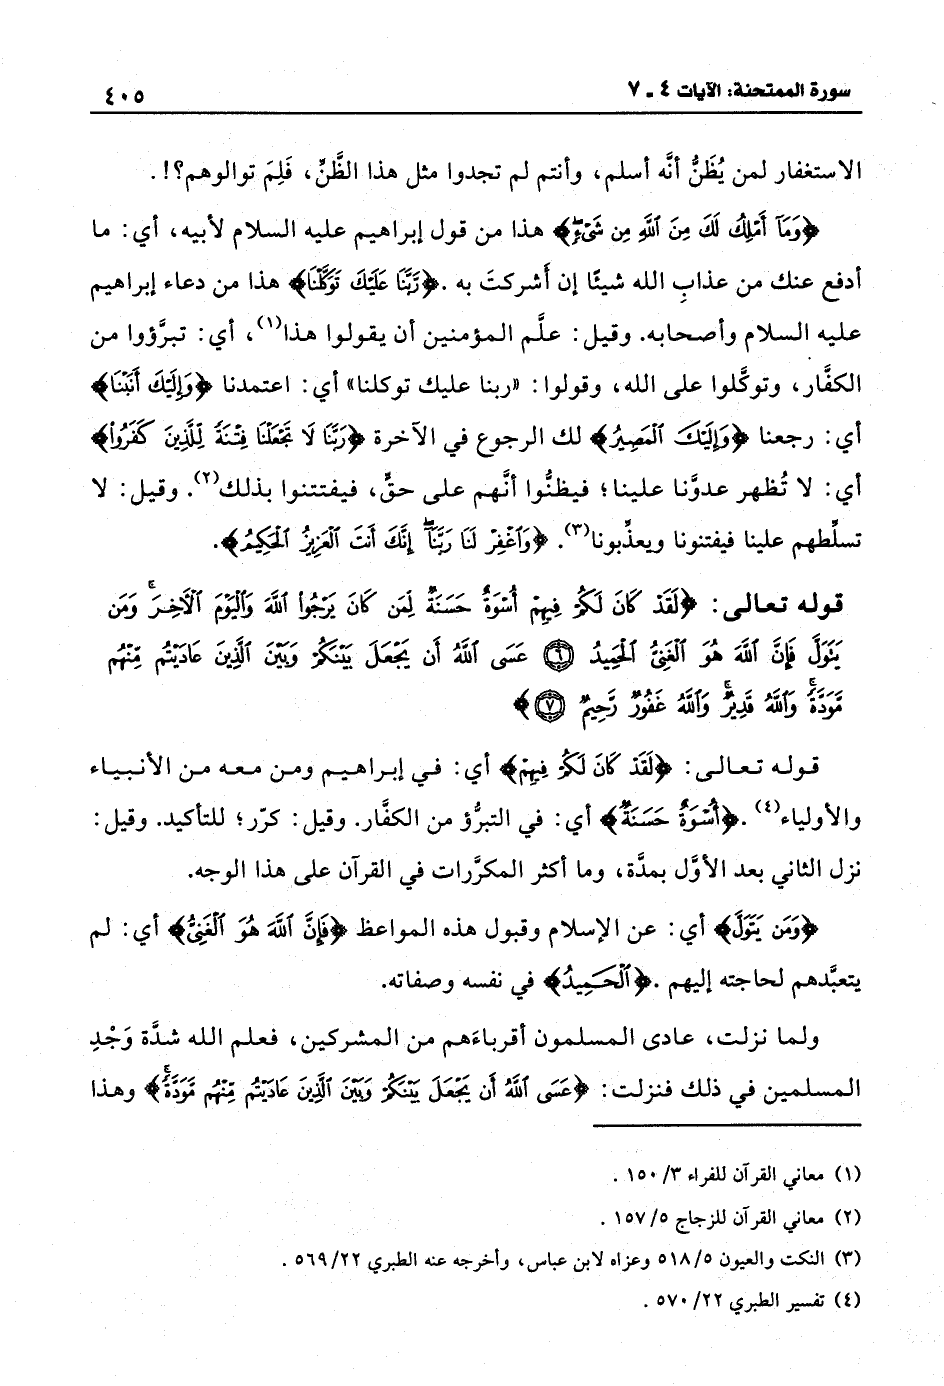 سورة الممتحنة: الآيات ٤ ـ ٧ ٤٠٥
الاستغفار لمن يُظَنُّ أنَّه أسلم، وأنتم لم تجدوا مثل هذا الظَّنِّ، فَلِمَ توالوهم؟!.
﴿وَمَآ أَمْلِكُ لَكَ مِنَ ٱللَّهِ مِن شَىْءٍ﴾ هذا من قول إبراهيم عليه السلام لأبيه، أي: ما
أدفع عنك من عذابِ الله شيئًا إن أَشركتَ به .﴿رَّبَّنَا عَلَيْكَ تَوَكَّلْنَا﴾ هذا من دعاء إبراهيم
عليه السلام وأصحابه. وقيل: علَّم المؤمنين أن يقولوا هذا(١)، أي: تبرَّؤوا من
الكفَّار، وتوكَّلوا على الله، وقولوا: «ربنا عليك توكلنا» أي: اعتمدنا ﴿وَإِلَيْكَ أَنَبْنَا﴾
أي: رجعنا ﴿وَإِلَيْكَ ٱلْمَصِيرُ﴾ لك الرجوع في الآخرة ﴿رَبَّنَا لَا تَجْعَلْنَا فِتْنَةً لِّلَّذِينَ كَفَرُوا۟﴾
أي: لا تُظهر عدوَّنا علينا؛ فيظنُّوا أنَّهم على حقٍّ، فيفتتنوا بذلك(٢). وقيل: لا
تسلِّطهم علينا فيفتنونا ويعذِّبونا(٣). ﴿وَٱغْفِرْ لَنَا رَبَّنَآ إِنَّكَ أَنتَ ٱلْعَزِيزُ ٱلْحَكِيمُ﴾.
قوله تعالى: ﴿لَقَدْ كَانَ لَكُمْ فِيهِمْ أُسْوَةٌ حَسَنَةٌ لِّمَن كَانَ يَرْجُوا۟ ٱللَّهَ وَٱلْيَوْمَ ٱلْآخِرَ ۚ وَمَن
يَتَوَلَّ فَإِنَّ ٱللَّهَ هُوَ ٱلْغَنِىُّ ٱلْحَمِيدُ ۝٦ عَسَى ٱللَّهُ أَن يَجْعَلَ بَيْنَكُمْ وَبَيْنَ ٱلَّذِينَ عَادَيْتُم مِّنْهُم
مَّوَدَّةً ۚ وَٱللَّهُ قَدِيرٌ ۚ وَٱللَّهُ غَفُورٌ رَّحِيمٌ ۝٧﴾
قوله تعالى: ﴿لَقَدْ كَانَ لَكُمْ فِيهِمْ﴾ أي: في إبراهيم ومن معه من الأنبياء
والأولياء(٤) .﴿أُسْوَةٌ حَسَنَةٌ﴾ أي: في التبرُّؤ من الكفَّار. وقيل: كرّر؛ للتأكيد. وقيل:
نزل الثاني بعد الأوَّل بمدَّة، وما أكثر المكرَّرات في القرآن على هذا الوجه.
﴿وَمَن يَتَوَلَّ﴾ أي: عن الإسلام وقبول هذه المواعظ ﴿فَإِنَّ ٱللَّهَ هُوَ ٱلْغَنِىُّ﴾ أي: لم
يتعبَّدهم لحاجته إليهم .﴿ٱلْحَمِيدُ﴾ في نفسه وصفاته.
ولما نزلت، عادى المسلمون أقرباءَهم من المشركين، فعلم الله شدَّة وَجْدِ
المسلمين في ذلك فنزلت: ﴿عَسَى ٱللَّهُ أَن يَجْعَلَ بَيْنَكُمْ وَبَيْنَ ٱلَّذِينَ عَادَيْتُم مِّنْهُم مَّوَدَّةً ۚ﴾ وهذا
(١) معاني القرآن للفراء ٣/ ١٥٠ .
(٢) معاني القرآن للزجاج ٥/ ١٥٧ .
(٣) النكت والعيون ٥/ ٥١٨ وعزاه لابن عباس، وأخرجه عنه الطبري ٢٢/ ٥٦٩ .
(٤) تفسير الطبري ٢٢/ ٥٧٠ .